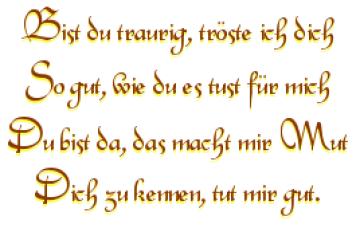 Bist du traurig, tröste ich dich
So gut, wie du es tust für mich
Du bist da, das macht mir Mut
Dich zu kennen, tut mir gut.